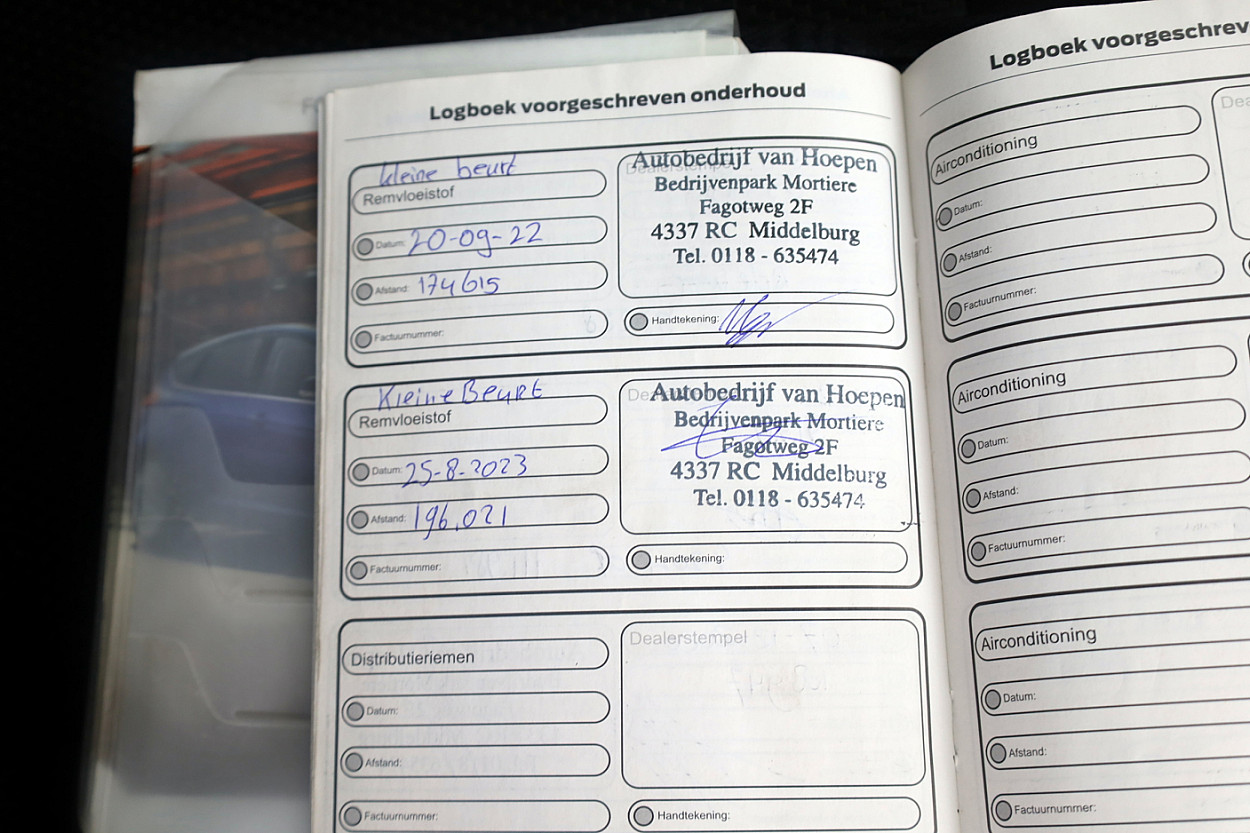 Logboek voorgeschreven onderhoud
kleine beurt
Remvloeistof
Datum: 20-09-22
Afstand: 174615
Factuurnummer:
Autobedrijf van Hoepen
Bedrijvenpark Mortiere
Fagotweg 2F
4337 RC Middelburg
Tel. 0118 - 635474
Handtekening:
Kleine Beurt
Remvloeistof
Datum: 25-8-2023
Afstand: 196.021
Factuurnummer:
Autobedrijf van Hoepen
Bedrijvenpark Mortiere
Fagotweg 2F
4337 RC Middelburg
Tel. 0118 - 635474
Handtekening:
Distributieriemen
Datum:
Afstand:
Factuurnummer:
Dealerstempel
Handtekening:
Logboek voorgeschrev
Airconditioning
Datum:
Afstand:
Factuurnummer:
Dea
Airconditioning
Datum:
Afstand:
Factuurnummer:
Airconditioning
Datum:
Afstand:
Factuurnummer: